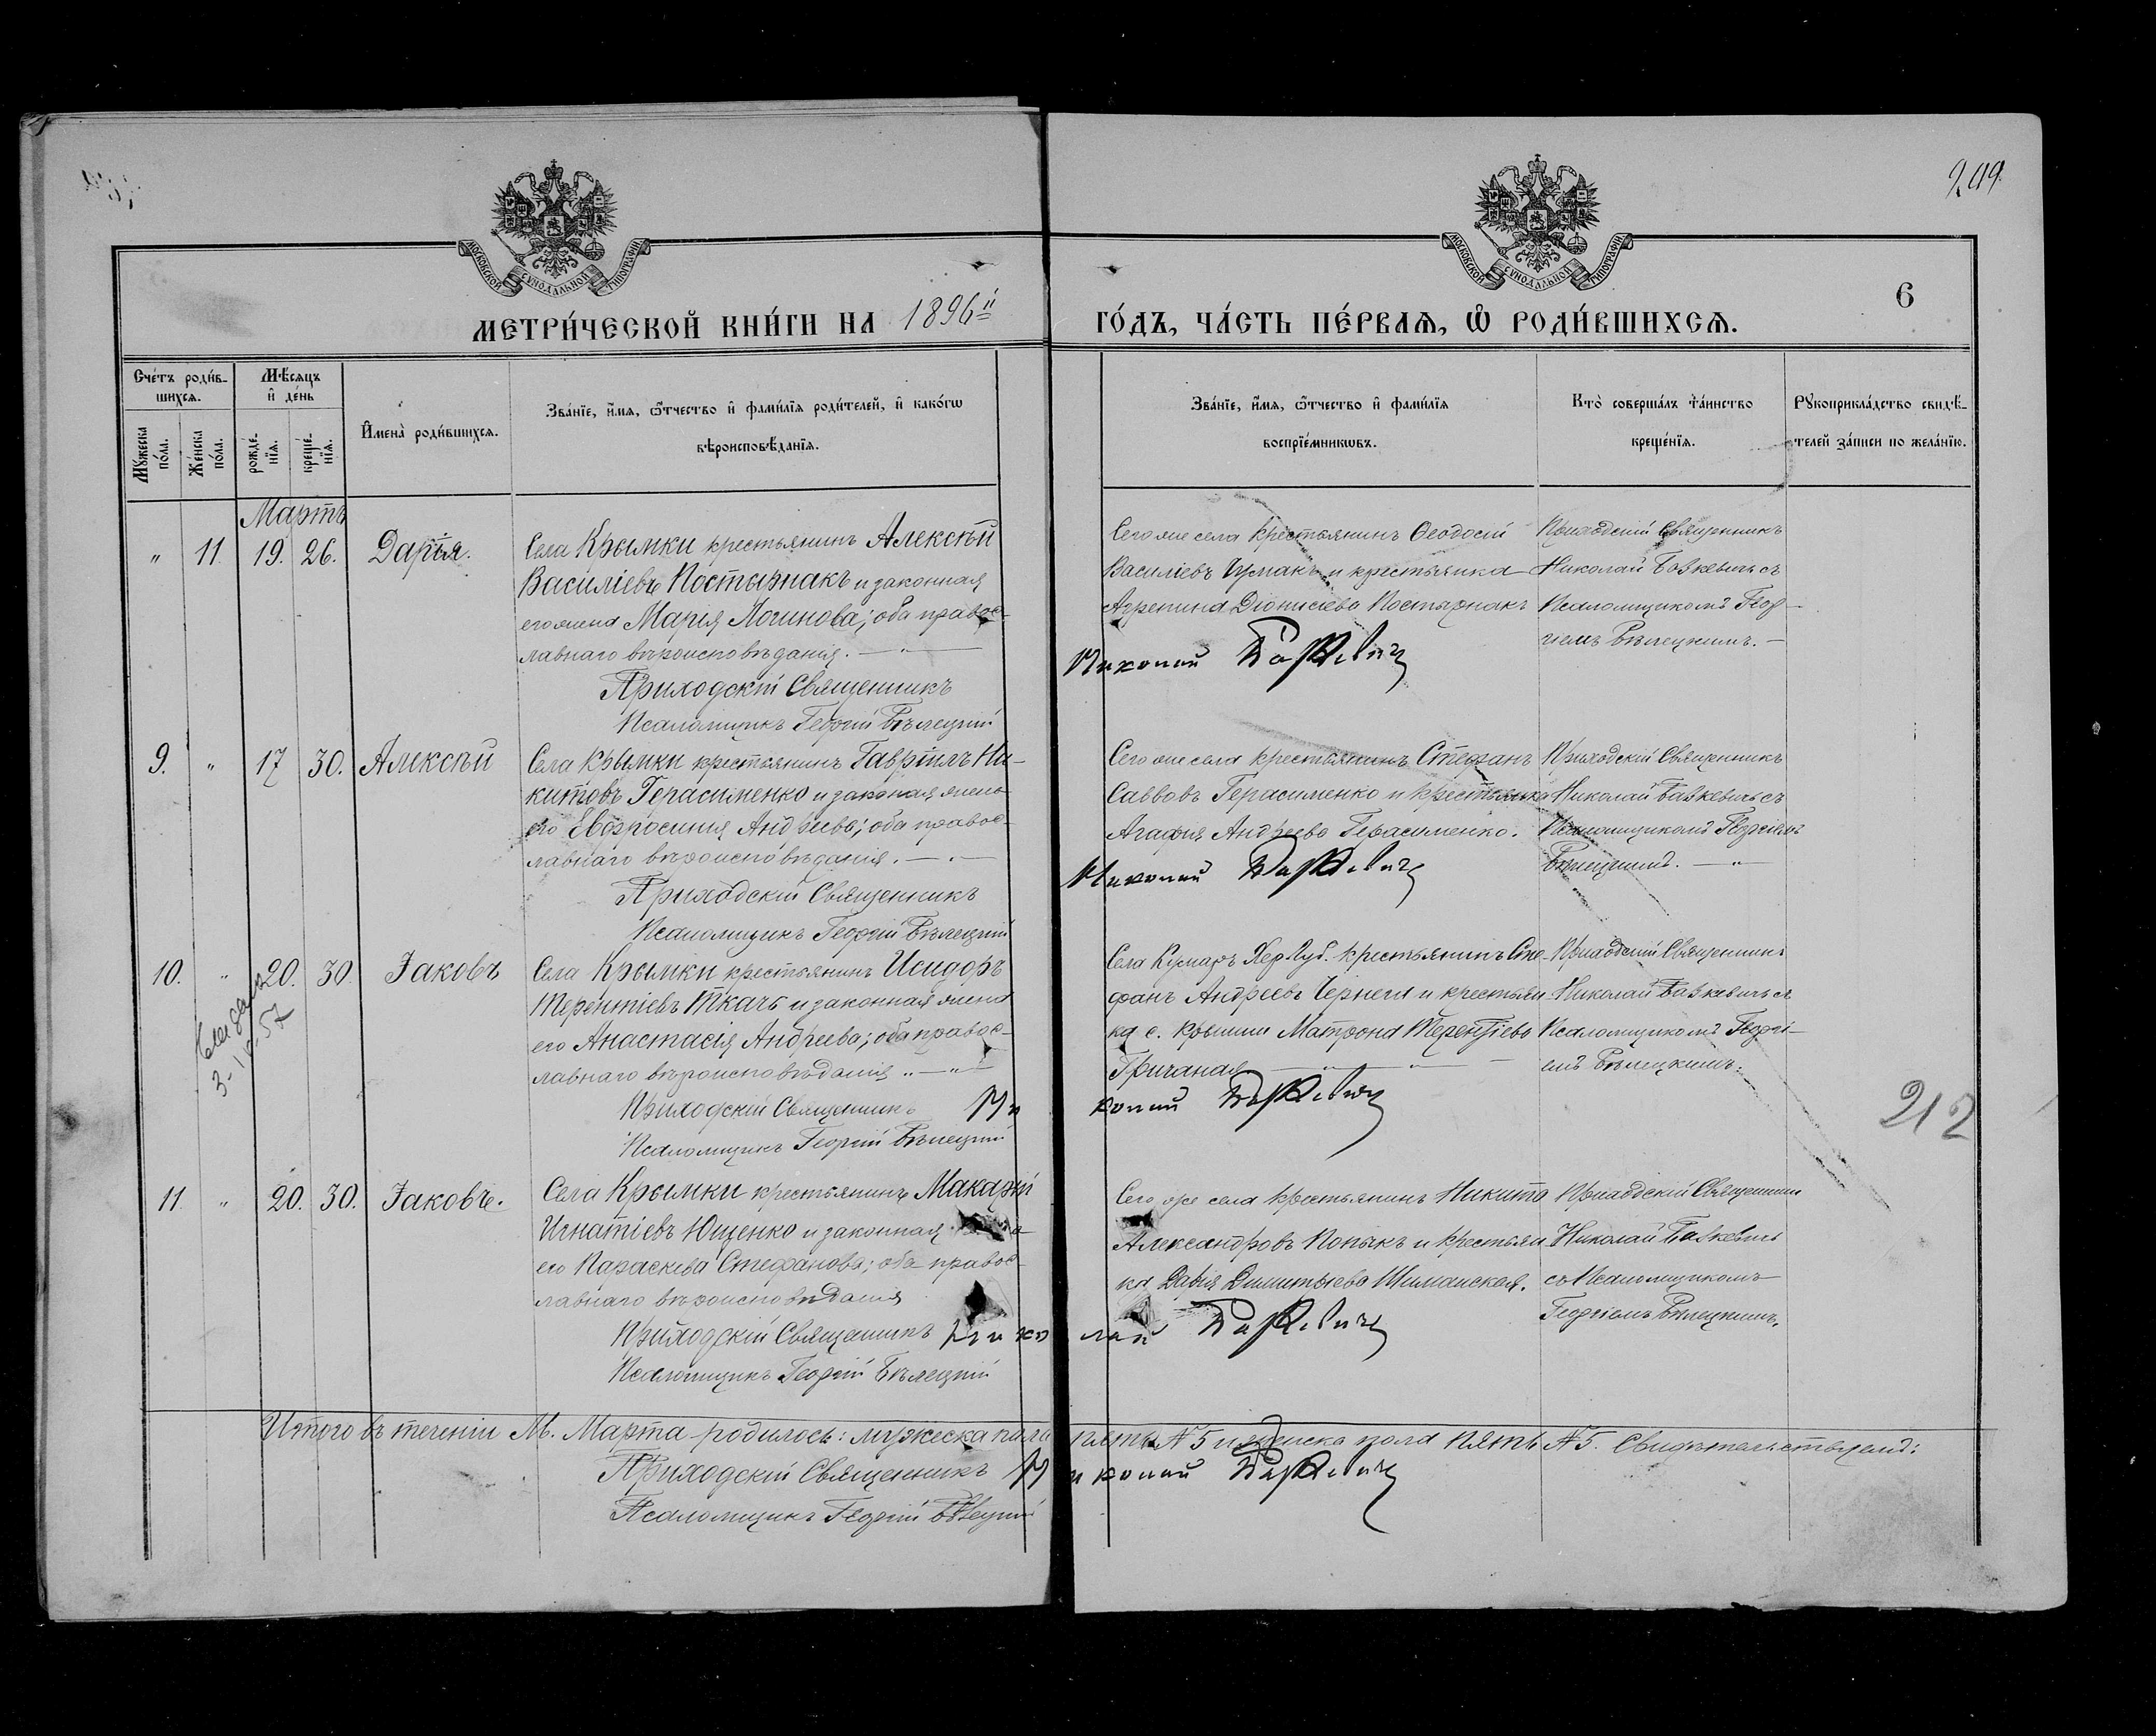 249.
МОСКОВСКОЙ СѴНОДАЛЬНОЙ ТИПОГРАФІИ
МОСКОВСКОЙ СѴНОДАЛЬНОЙ ТИПОГРАФІИ
6
МЕТРИ́ЧЕСКОЙ КНИ́ГИ НА 1896й ГО́ДЪ, ЧА́СТЬ ПЕ́РВАѦ, Ѡ҆ РОДИ́ВШИХСѦ.
Сче́тъ роди́в-
шихсѧ.
Мѹ́жеска по́ла.
Же́нска по́ла.
Мѣ́сѧцъ
и҆ де́нь
рожде́-
нїѧ.
креще́-
нїѧ.
И҆мена̀ роди́вшихсѧ.
Зва́нїе, и҆́мѧ, ѻ҆́тчество и҆ фами́лїѧ роди́телей, и҆ како́гѡ
вѣроисповѣ́данїѧ.
Зва́нїе, и҆́мѧ, ѻ҆́тчество и҆ фами́лїѧ
воспрїе́мникѡвъ.
Кто̀ соверша́лъ та́инство
креще́нїѧ.
Рѹкоприкла́дство свидѣ́-
телей за́писи по жела́нїю.
Мартъ
" 11. 19. 26. Дарія.
Села Крымки крестьянинъ Алексѣй
Василіевъ Постырнакъ и законная
его жена Марія Логинова; оба правос-
лавнаго вѣроисповѣданія. — " —
Приходскій Священникъ
Псаломщикъ Георгій Бѣлецкій
Сего же села крестьянинъ Ѳеодосій
Василіевъ и крестьянка
Агрепина Діонисіева Постырнакъ
Николай Базкевичъ
Приходскій Священникъ
Николай Базкевичъ съ
Псаломщикомъ Геор-
гіемъ Бѣлецкимъ. —
9. " 17 30. Алексѣй
Села Крымки крестьянинъ Гавріилъ Ни-
китовъ Герасименко и законная жена
его Евфросинія Андреева; оба правос-
лавнаго вѣроисповѣданія. — " —
Приходскій Священникъ
Псаломщикъ Георгій Бѣлецкій
Сего же села крестьянинъ Стефанъ
Саввовъ Герасименко и крестьянка
Агафія Андреева Герасименко.
Николай Базкевичъ
Приходскій Священникъ
Николай Базкевичъ съ
Псаломщикомъ Георгіемъ
Бѣлецкимъ. — " —
10. " 20. 30 Іаковъ
3-10-57
Села Крымки крестьянинъ Исидоръ
Терентіевъ Ткачъ и законная жена
его Анастасія Андреева; оба правос-
лавнаго вѣроисповѣданія. — " —
Приходскій Священникъ
Псаломщикъ Георгій Бѣлецкій
Села Хер. Губ. крестьянинъ Сте-
фанъ Андреевъ Чернега и крестьян-
ка с. Крымки Матрона Терентіева
Николай Базкевичъ
Приходскій Священникъ
Николай Базкевичъ съ
Псаломщикомъ Георгі-
емъ Бѣлецкимъ.
212
11. " 20. 30. Іаковъ.
Села Крымки крестьянинъ Макарій
Игнатіевъ Ющенко и законная жена
его Параскева Стефанова; оба правос-
лавнаго вѣроисповѣданія
Приходскій Священникъ
Псаломщикъ Георгій Бѣлецкій
Сего же села крестьянинъ Никита
Александровъ Попыкъ и крестьян
ка Дарія Димитріева Шиманская.
Николай Базкевичъ
Приходскій Священникъ
Николай Базкевичъ
съ Псаломщикомъ
Георгіемъ Бѣлецкимъ.
Итого въ теченіи М. Марта родилось: мужеска пола пять № 5 и женска пола пять № 5. Свидѣтельствуемъ:
Приходскій Священникъ Николай Базкевичъ
Псаломщикъ Георгій Бѣлецкій